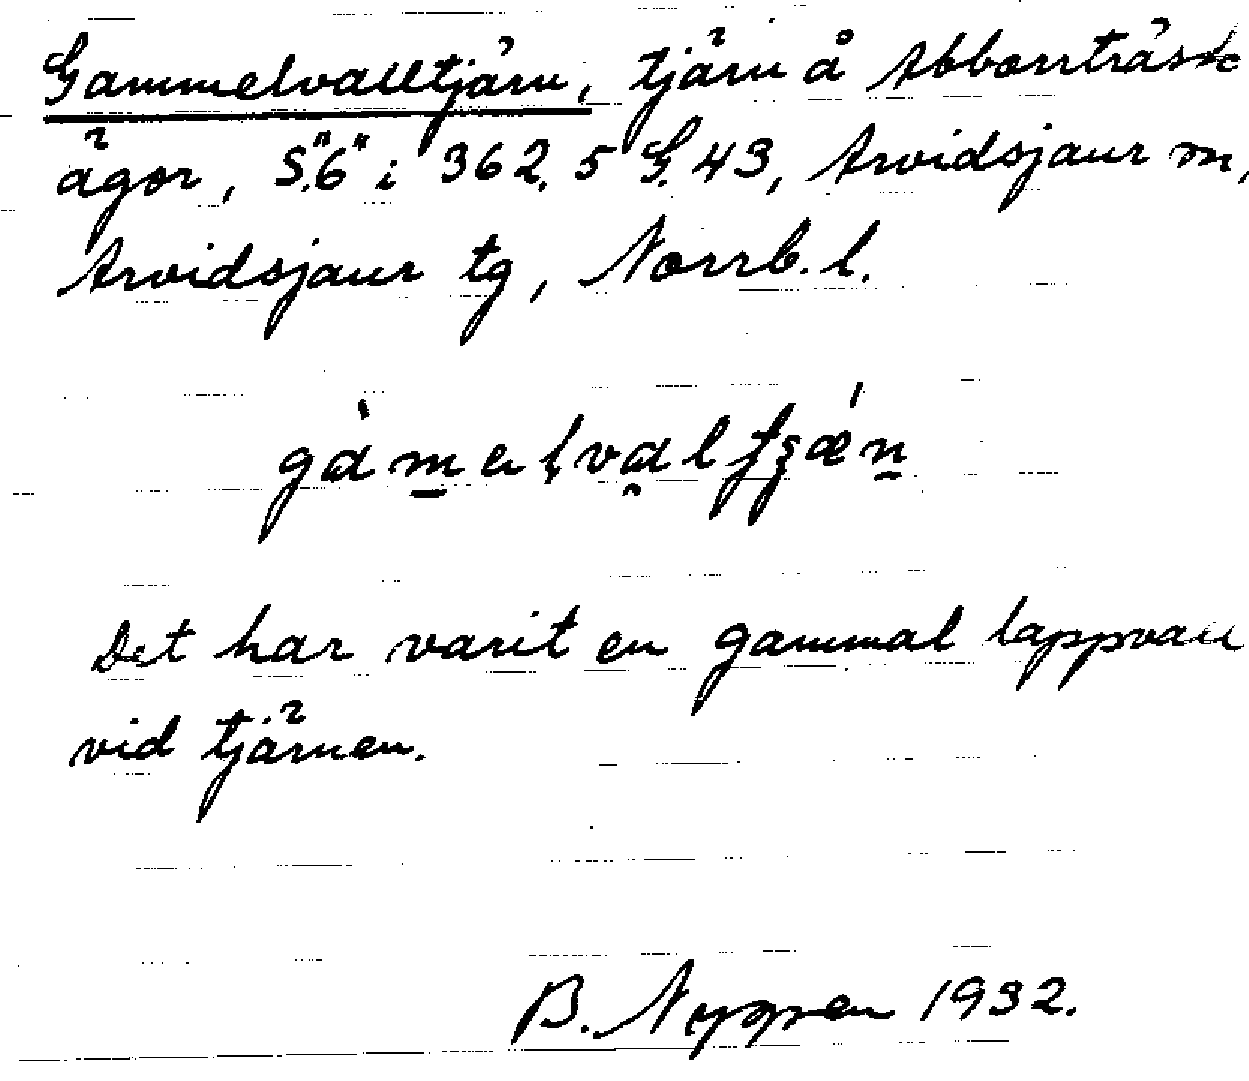 Gammelvalltjärn, tjärn å Abborrträsk
ägor, S."6" i 362. 5 G. 43, Arvidsjaur sn,
Arvidsjaur tg, Norrb. l.
Det har varit en gammal lappvall
vid tjärnen.
B. Nyppen 1932.